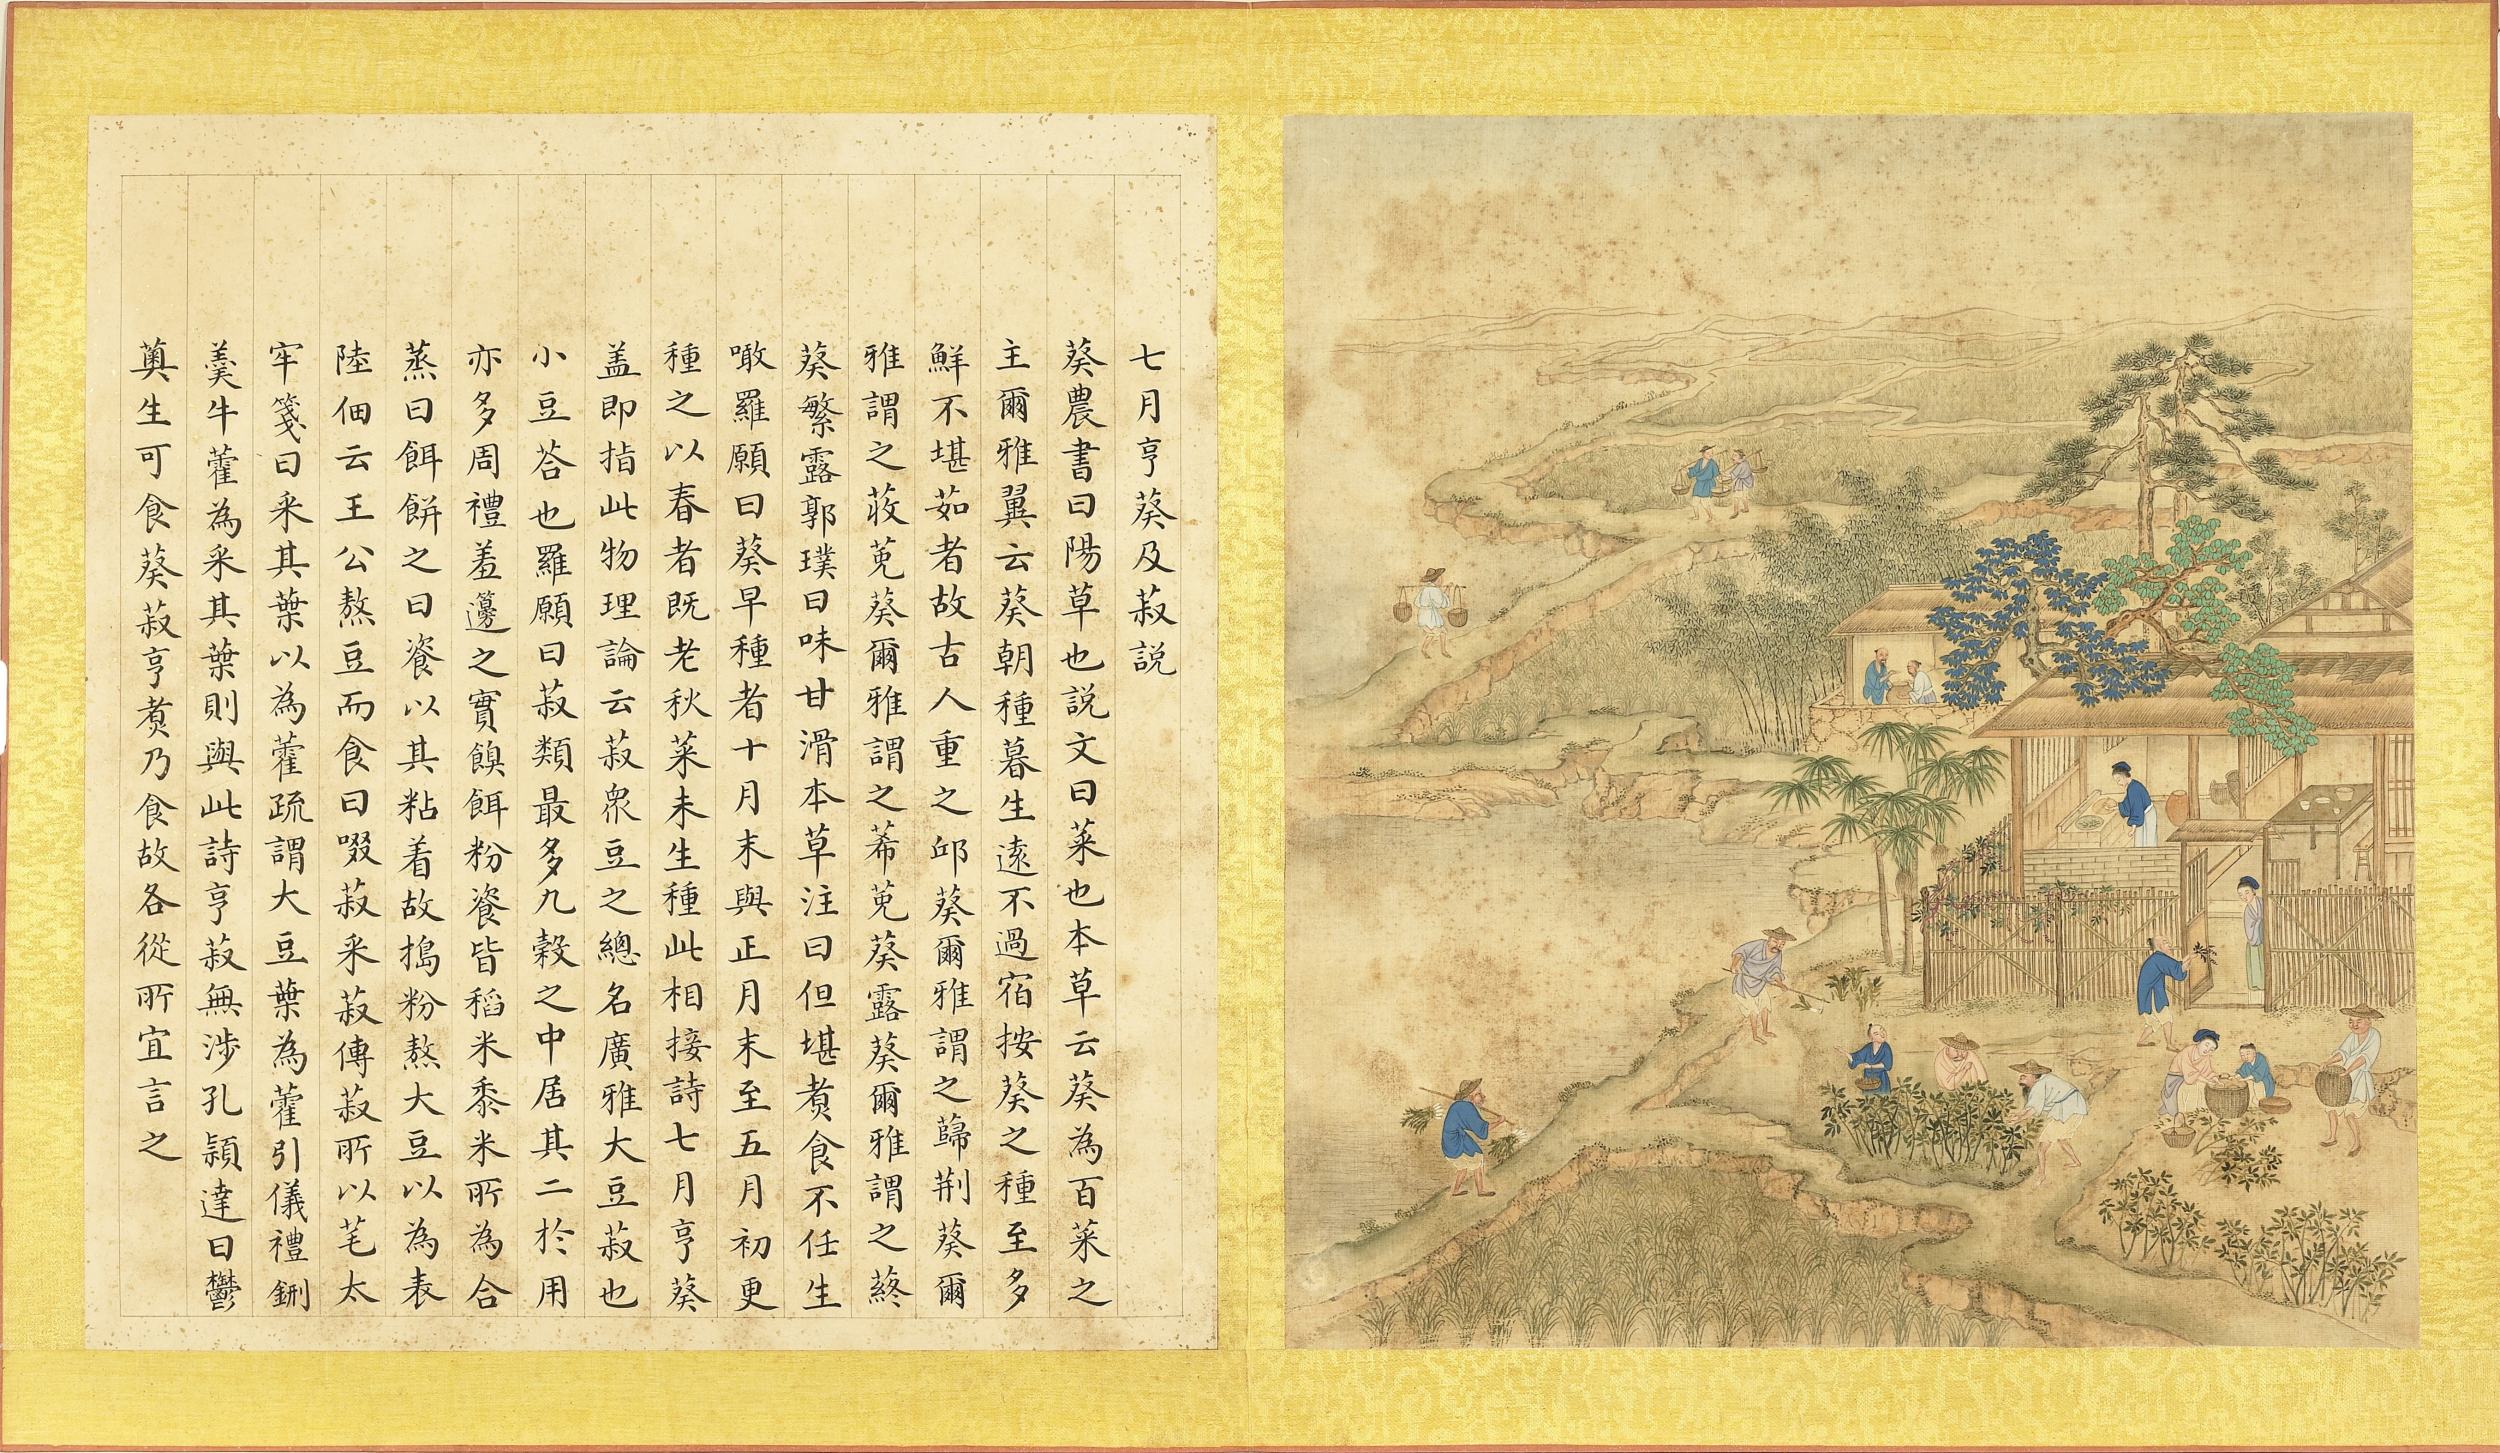 七月亨葵及菽説
葵農書曰陽草也説文曰菜也本草云葵為百菜之
主爾雅翼云葵朝種暮生遠不過宿按葵之種至多
鮮不堪茹者故古人重之邱葵爾雅謂之蘬荆葵爾
雅謂之荍莧葵爾雅謂之莃莧葵露葵爾雅謂之蔠
葵繁露郭璞曰味甘滑本草注曰但堪煮食不任生
噉羅願曰葵早種者十月末與正月末至五月初更
種之以春者既老秋菜未生種此相接詩七月亨葵
盖即指此物理論云菽衆豆之總名廣雅大豆菽也
小豆荅也羅願曰菽類最多九穀之中居其二於用
亦多周禮羞籩之實餌粉餈皆稻米黍米所為合
蒸曰餌餅之曰餈以其粘着故搗粉熬大豆以為表
陸佃云王公熬豆而食曰啜菽采菽傳菽所以芼太
牢箋曰采其葉以為藿疏謂大豆葉為藿引儀禮鉶
羮牛藿為采其葉則與此詩亨菽無涉孔頴達曰鬱
薁生可食葵菽亨煮乃食故各從所宜言之